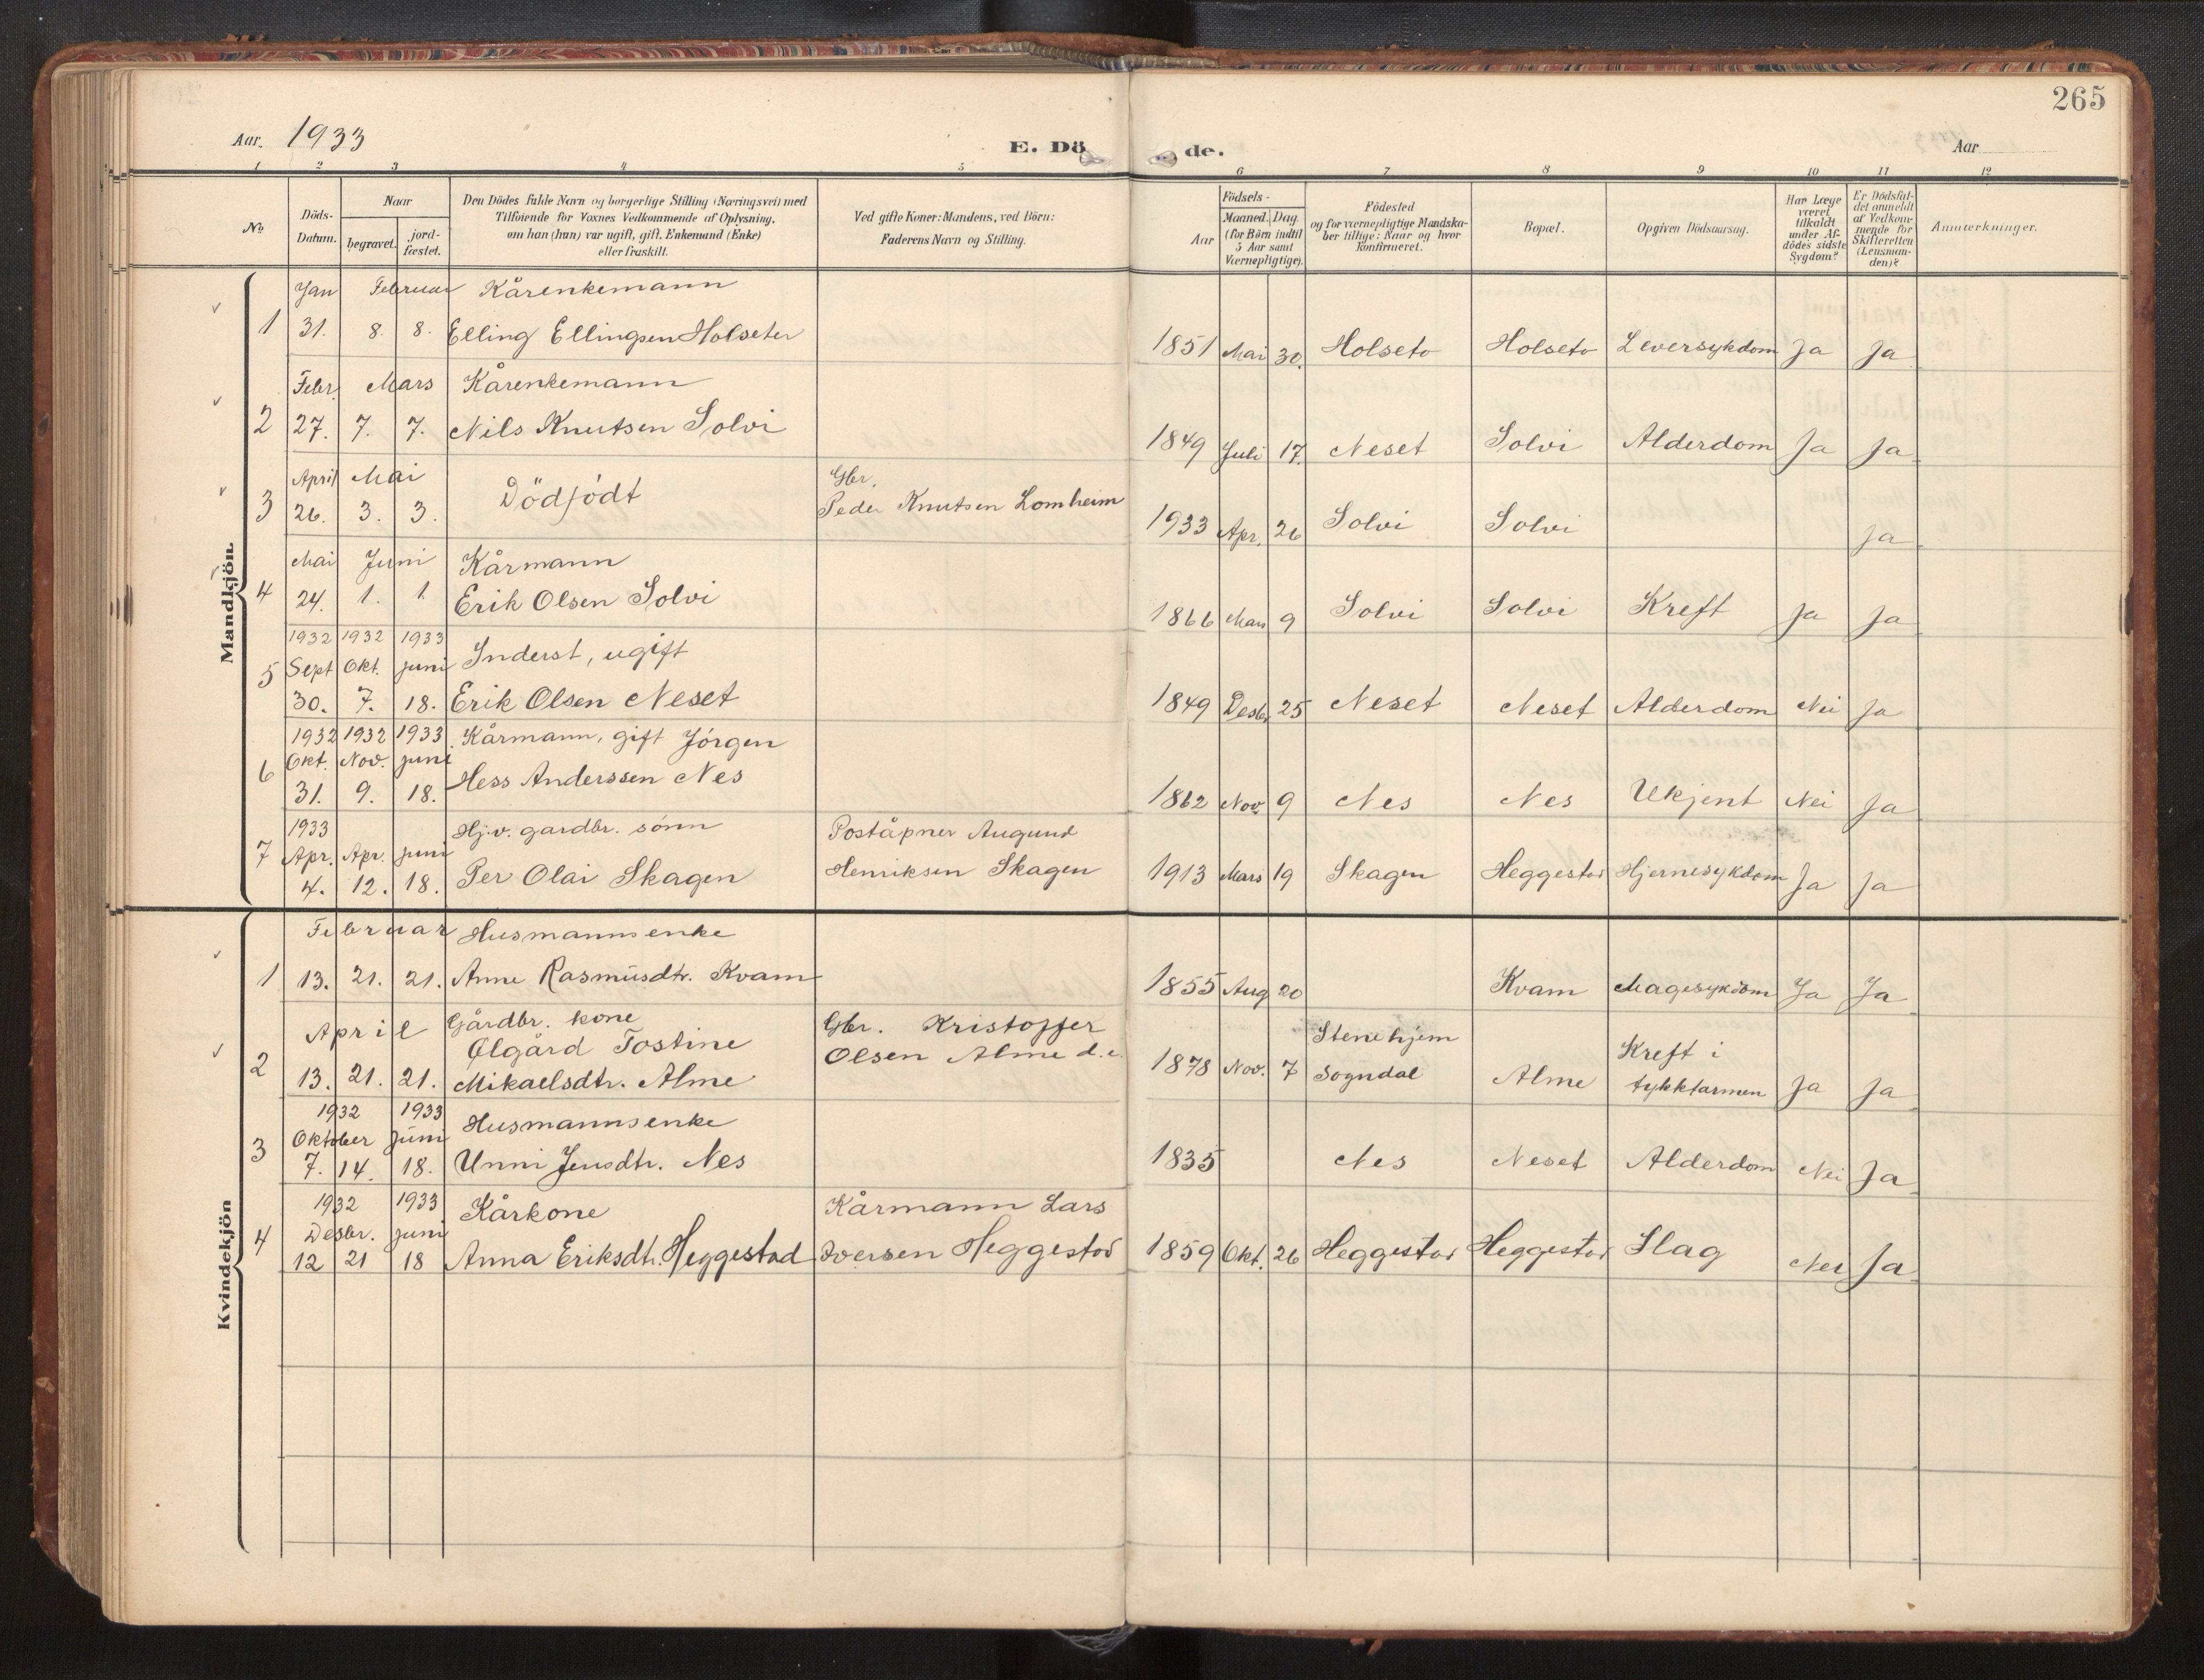 265
Aar. 1933
E. Dö de.
Aar
1 2 3 4 5 6 7 8 9 10 11 12
No
Döds-
Datum.
Naar
begravet.
jord-
fæstet.
Den Dödes fulde Navn og borgerlige Stilling (Næringsvei) med
Tilföiende for Voxnes Vedkommende af Oplysning,
om han (hun) var ugift, gift, Enkemand (Enke)
eller fraskilt.
Ved gifte Koner: Mandens, ved Börn:
Faderens Navn og Stilling.
Födsels-
Aar
Maaned. Dag.
(for Börn indtil
5 Aar samt
Værnepligtige).
Födested
og for værnepligtige Mandska-
ber tillige: Naar og hvor
konfirmeret.
Bopæl.
Opgiven Dödsaarsag.
Har Læge
været
tilkaldt
under Af-
dödes sidste
Sygdom?
Er Dödsfal-
det anmeldt
af Vedkom-
mende for
Skifteretten
(Lensman-
den)?
Anmærkninger.
Mandkjön.
Jan Februar Kårenkemann
1 31. 8. 8. Elling Ellingsen Holseter 1851 Mai 30. Holsete Holsete Leversykdom Ja Ja
Febr. Mars Kårenkemann
2 27. 7. 7. Nils Knutsen Solvi 1849 Juli 17. Neset Solvi Alderdom Ja Ja
April Mai Gbr.
3 26. 3. 3. Dödfödt Peder Knutsen Lomheim 1933 Apr. 26 Solvi Solvi Ja
Mai Juni Kårmann
4 24. 1. 1. Erik Olsen Solvi 1866 Mars 9 Solvi Solvi Kreft Ja Ja
1932 1932 1933
5 Sept Okt. juni Inderst, ugift
30. 7. 18. Erik Olsen Neset 1849 Desbr 25 Neset Neset Alderdom Nei Ja
1932 1932 1933 Kårmann, gift Jörgen
6 Okt. Nov. juni Hess Anderssen Nes
31. 9. 18. 1862 Nov. 9 Nes Nes Ukjent Nei Ja
1933 Hj.v. gardbr. sönn Poståpner Augund
7 Apr. Apr. juni
4. 12. 18. Per Olai Skagen Henriksen Skagen 1913 Mars 19 Skagen Heggestad Hjernesykdom Ja Ja
Kvindekjön
Februar Husmannsenke
1 13. 21. 21. Anne Rasmusdtr. Kvam 1855 Aug 20 Kvam Magesykdom Ja Ja
April Gårdbr. kone Gbr. Kristoffer Stenehjem
Olgård Tostine Olsen Alme d.e. Kreft i
2 13. 21. 21. Mikaelsdtr. Alme 1878 Nov. 7 Sogndal Alme tykktarmen Ja Ja
1932 1933 Husmannsenke
3 Oktober juni
7. 14. 18. Unni Jensdtr. Nes 1835 Nes Neset Alderdom Nei Ja
1932 1933 Kårkone Kårmann Lars
4 Desbr. juni
12 21 18 Anna Eriksdtr. Heggestad Iversen Heggestad 1859 Okt. 26 Heggestad Heggestad Slag Nei Ja